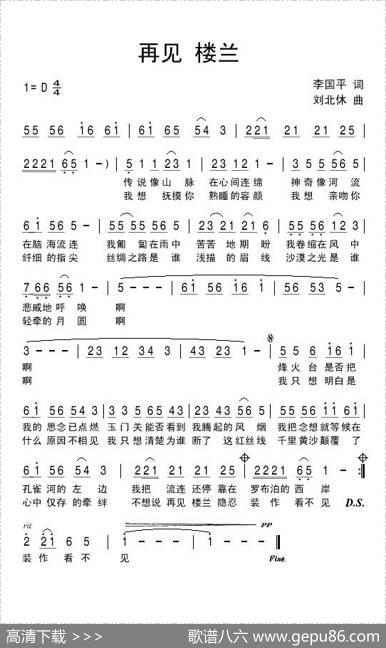 再见 楼兰
1= D 4/4
李国平 词
刘北休 曲
55 56 i6 6i | 65 65 54 3 | 221 21 21 25 |
2221 65 1 - ) | 5 1 1 23 1 | 23 12 23 1 | 3 5 5 56 5 |
传说像山脉 在心间连绵 神奇像河流
我想 抚摸你 熟睡的容颜 我想 亲吻你
在脑海流连 我匍匐在雨中 苦苦地期盼 我卷缩在风中
纤细的指尖 丝绸之路是谁 浅描的眉线 沙漠之光是谁
悲戚地呼唤 啊
轻牵的月圆 啊
3 - - - | 23 12 34 3 | 43 23 21 1 | 1 - - - | 5 5 6 i6 i |
啊 烽火台是否把
啊 我只想明白是
我的思念已点燃 玉门关能否看到我腾起的风烟 我把念想就等候在
什么原因不相见 我只想清楚为谁断了这红丝线 千里黄沙颠覆了
孔雀河的左边 我把流连还停靠在 罗布泊的西岸
心中仅存的牵绊 不想说再见楼兰隐忍 装作看不见 D.S.
rit pp
2 21 6 5 | 1 - - - | 1 - - - ‖
装作看不见 Fine
高清下载 >>> 歌谱八六 www.gepu86.com